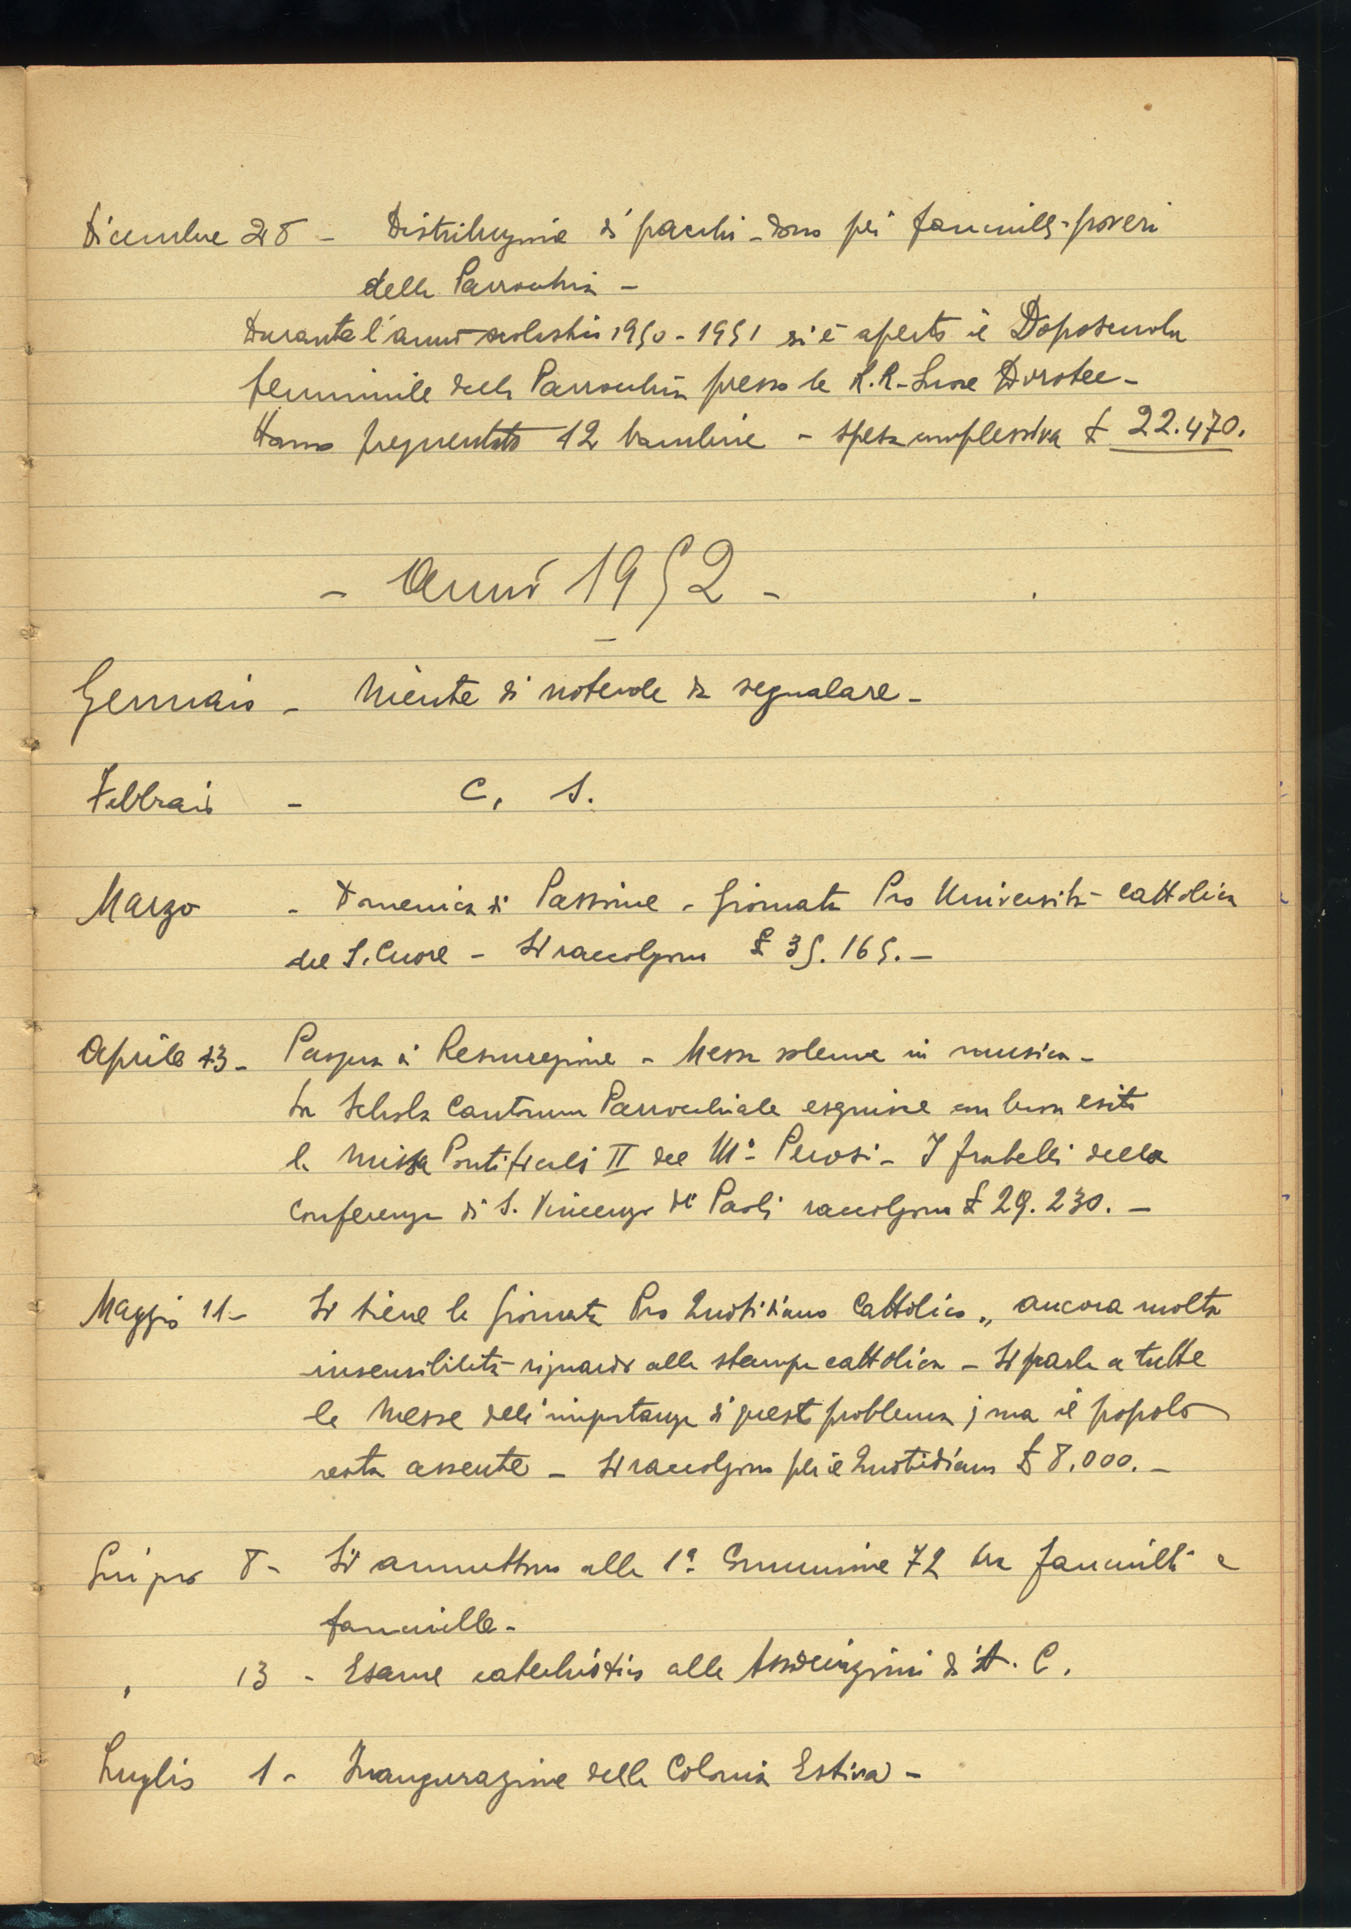 Dicembre 28 - Distribuzione di pacchi-dono pei fanciulli-poveri
della Parrocchia -
Durante l'anno scolastico 1950-1951 si è aperto il Doposcuola
femminile della Parrocchia presso le R.R. Suore Dorotee -
Hanno frequentato 12 bambine - spesa complessiva £ 22.470.
- Anno 1952 -
Gennaio - Niente di notevole da segnalare -
Febbraio - C. S.
Marzo - Domenica di Passione - Giornata Pro Università Cattolica
del S. Cuore - Si raccolgono £ 35.165. -
Aprile 13 - Pasqua di Resurrezione - Messa solenne in musica -
La Schola Cantorum Parrocchiale eseguisce con buon esito
la Missa Pontificalis II del Mo Perosi - I fratelli della
Conferenza di S. Vincenzo de' Paoli raccolgono £ 29.230. -
Maggio 11 - Si tiene la Giornata Pro Quotidiano Cattolico „ ancora molta
insensibilità riguardo alla stampa cattolica - Si parla a tutte
le Messe dell'importanza di questo problema; ma il popolo
resta assente - Si raccolgono per il Quotidiano £ 8.000. -
Giugno 8 - Si ammettono alla 1a Comunione 72 tra fanciulli e
fanciulle -
, 13 - Esame catechistico alle Associazioni di A. C.
Luglio 1 - Inaugurazione della Colonia Estiva -